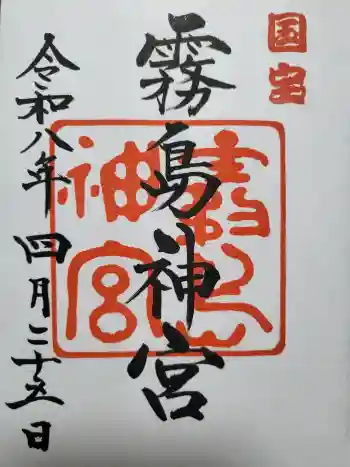 国宝
霧島神宮
霧島神宮
令和八年四月二十五日